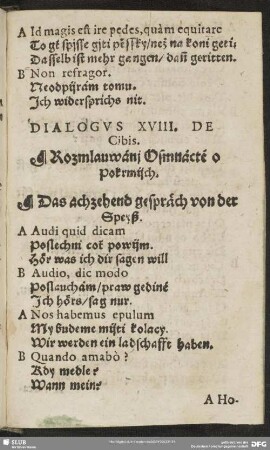 A Id magis est ire pedes, quàm equitare
To gt spjsse gjti pěssky/než na koni geti;
Dasselb ist mehr gangen/dañ geritten.
B Non refragor.
Neodpijrám tomu.
Ich widersprichs nit.
DIALOGVS XVIII. DE
Cibis.
¶ Rozmlauwánj Osmnácté o
Pokrmijch.
¶ Das achzehend gespräch von der
Speyß.
A Audi quid dicam
Poslechni coť powijm.
Hör was ich dir sagen will
B Audio, dic modo
Poslauchám/praw gediné
Ich hörs/sag nur.
A Nos habemus epulum
My budeme mijti kolacy.
Wir werden ein ladschafft haben.
B Quando amabò?
Kdy medle?
Wann mein?
A Ho-
SLUB